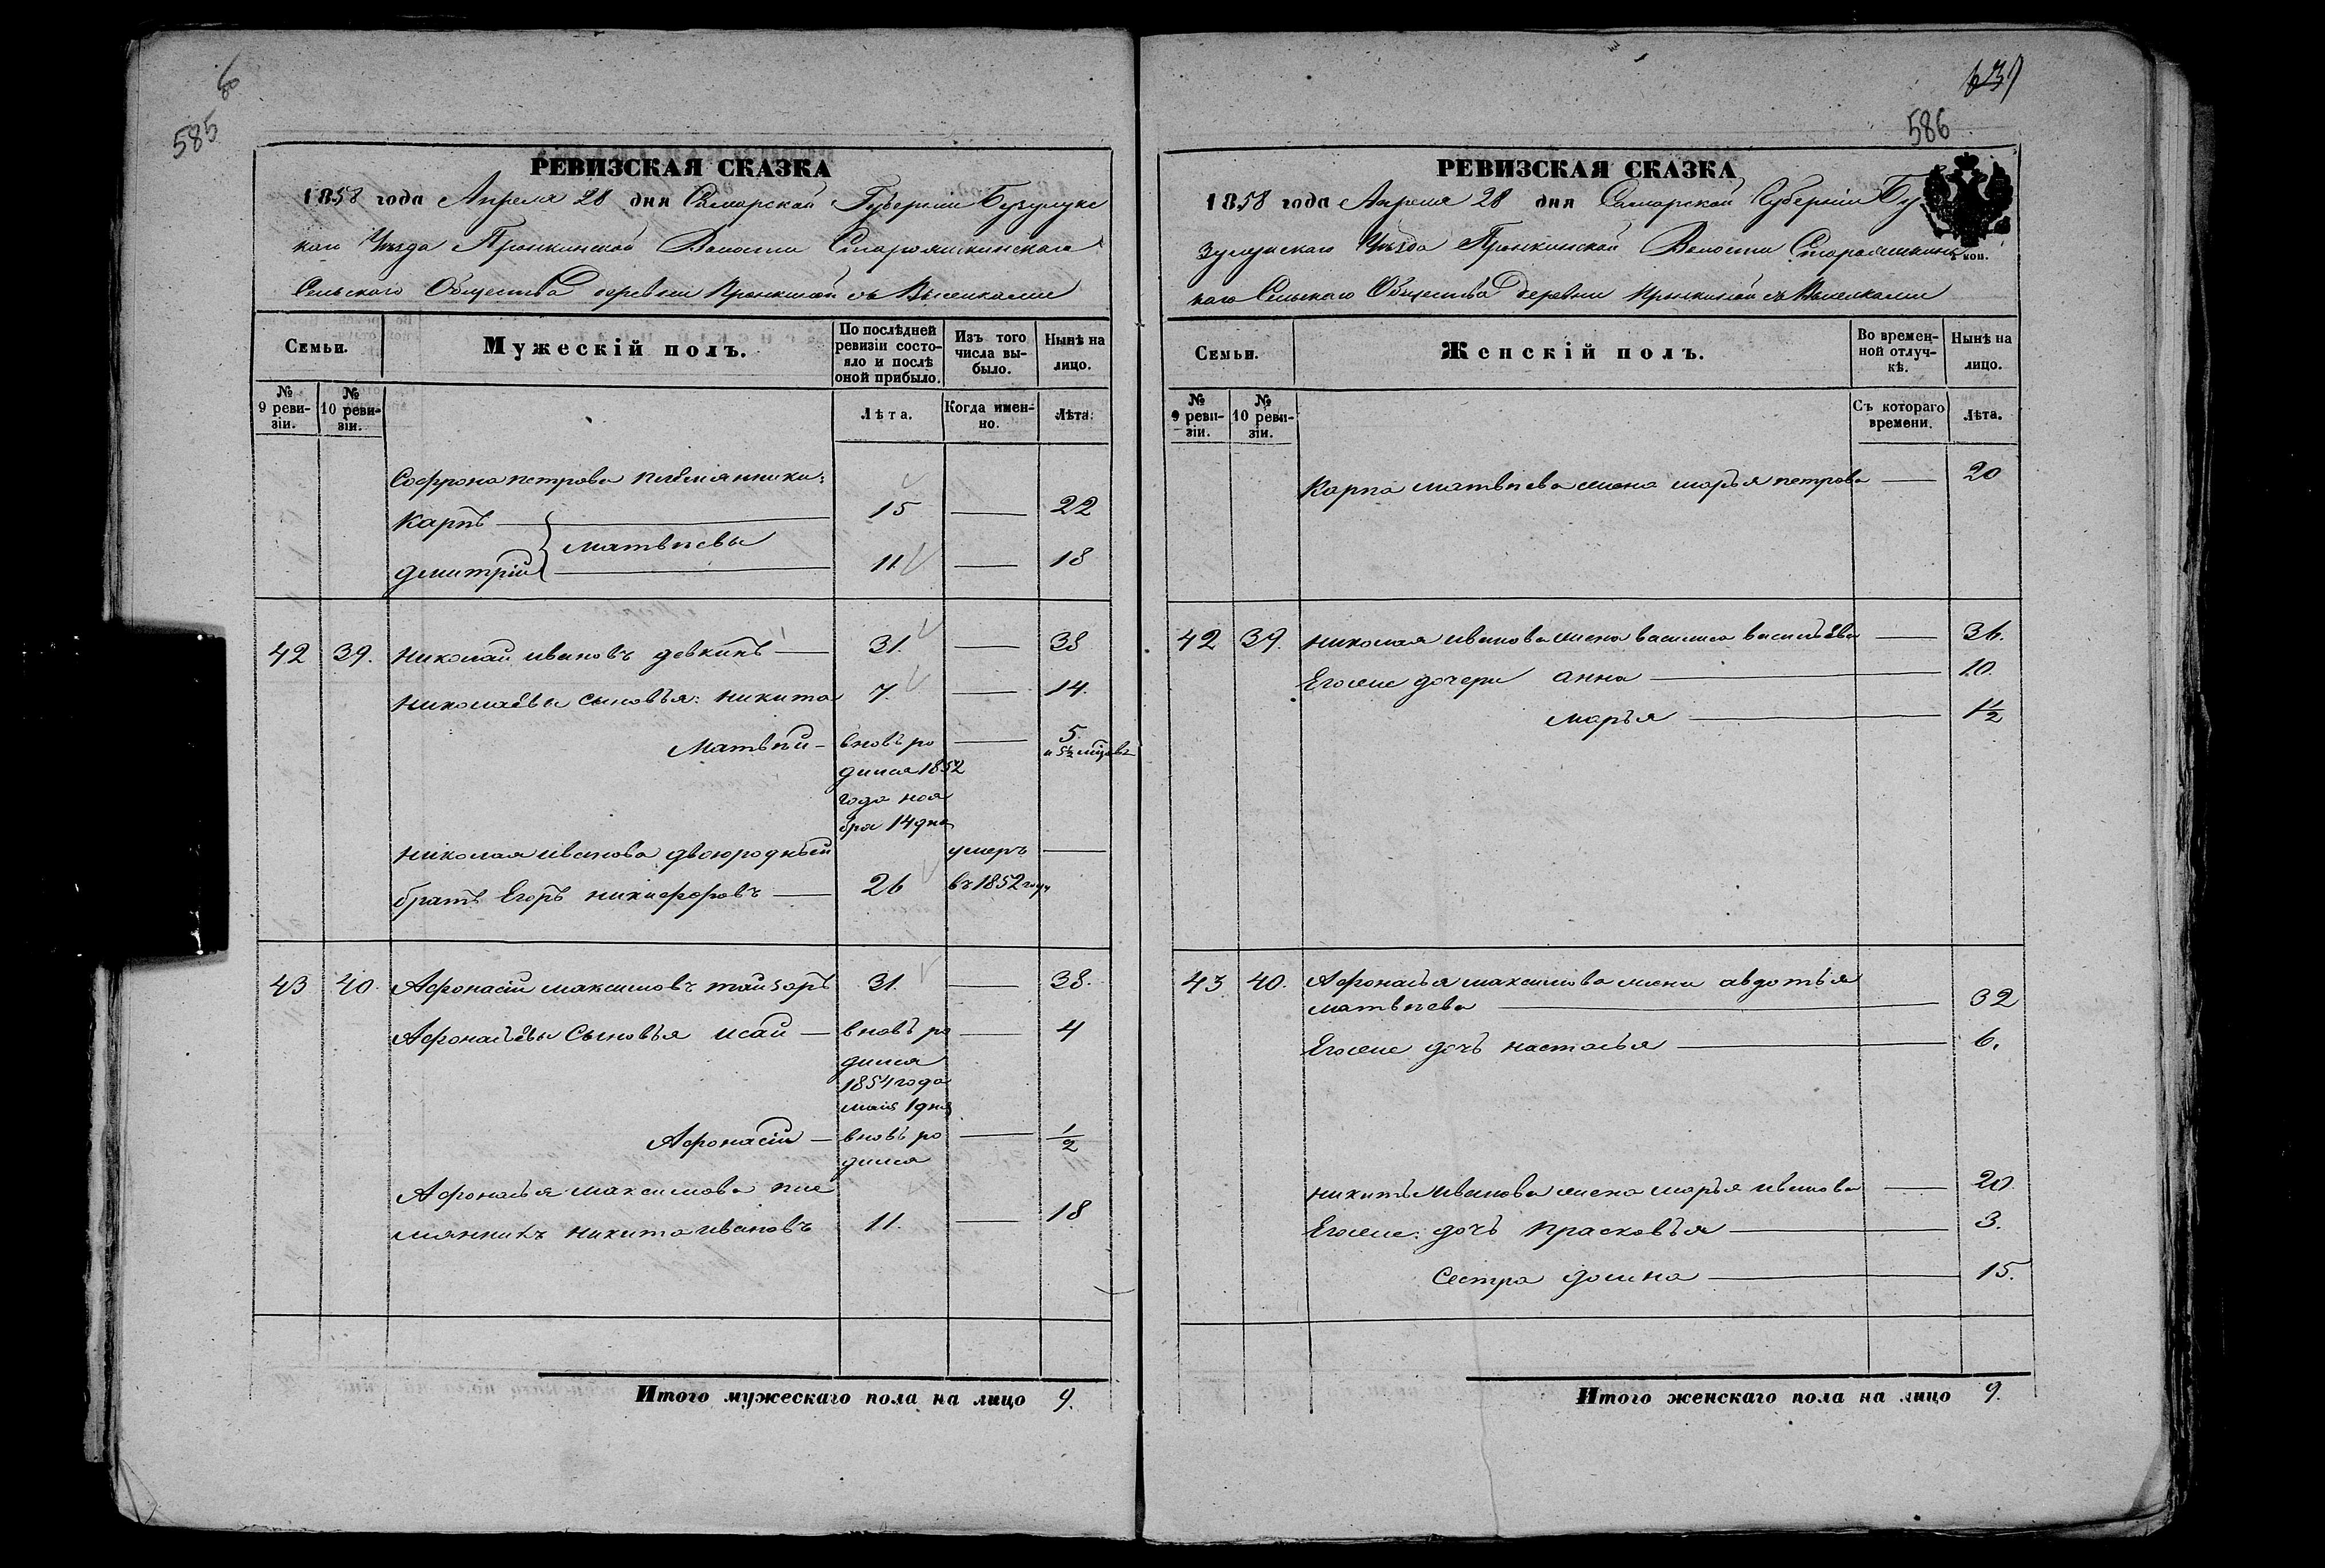 6
585
РЕВИЗСКАЯ СКАЗКА
1858 года Апреля 28 дня Самарской Губернии Бузулукс
каго Уѣзда Пронкинской Волости Старояшкинскаго
Сельскаго Общества деревни Пронкиной съ Выселками
Семьи.
Мужескій полъ.
По послѣдней ревизіи состояло и послѣ оной прибыло.
Изъ того числа выбыло.
Нынѣ на лицо.
№ 9 ревизіи.
№ 10 ревизіи.
Лѣта.
Когда именно.
Лѣта.
Софрона петрова племянники:
Карпъ — 15 — 22
матвѣевы
дмитрій — 11 — 18
42 39. николай ивановъ девкинъ — 31. — 38
николаевы сыновья: никита 7. — 14.
Матвѣй — вновь ро — 5
и 5½ мцовъ
дился 1852
года ноя
бря 14 дня
николая иванова двоюродный умеръ —
братъ Егоръ никифоровъ — 26 въ 1852 году
43 40. Афонасій максимовъ 31. — 38.
Афонасьевы Сыновья исай — вновь ро — 4
дился
1854 года
маія 1 дня
Афонасій — вновь ро — ½
дился
Афонасья максимова пле
мянникъ никита ивановъ 11. — 18
Итого мужескаго пола на лицо 9.
586
РЕВИЗСКАЯ СКАЗКА
1858 года Апреля 28 дня Самарской Губерніи Бу
зулукскаго Уѣзда Пронкинской Волости Старояшкинс
каго Сельскаго Общества деревни Пронкиной съ Выселками
коп.
Семьи.
Женскій полъ.
Во временной отлучкѣ.
Нынѣ на лицо.
№ 9 ревизіи.
№ 10 ревизіи.
Съ котораго времени.
Лѣта.
Карпа матвѣева жена марья петрова — 20
42 39. николая иванова жена василиса васильева — 36.
Егоже дочери анна — 10.
марья — 1½
43 40. Афонасья максимова жена авдотья
матвѣева — 32
Егоже дочь настасья — 6.
никиты иванова жена марья иванова — 20.
Егоже: дочь прасковья — 3.
Сестра домна — 15.
Итого женскаго пола на лицо 9.